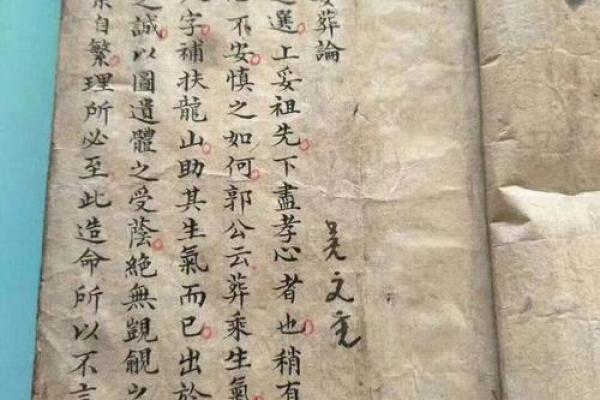 葬論
吴文
選上妥祖先下盡孝心者也稍有
不安慎之如何郭公云葬乘生氣
字補扶龍山助其生氣而已出於
之誠以圖遺體之受蔭絶無覬覦之
自繁理所必至此造命所以不言